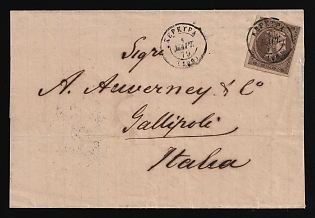 ΚΕΡΚΥΡΑ
ΜΑΡΤ.
79
Sigri
A. Auverney & Co
Gallipoli
Italia